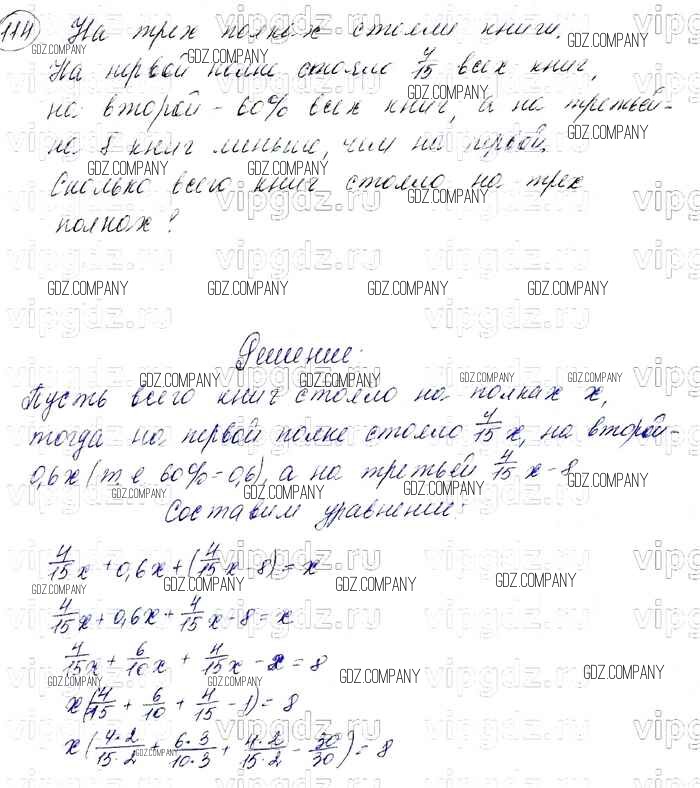 114 На трех полках стояли книги.
На первой полке стояло 4/15 всех книг,
на второй - 60% всех книг, а на третьей -
на 8 книг меньше, чем на первой.
Сколько всего книг стояло на трех
полках?
Решение:
Пусть всего книг стояло на полках x,
тогда на первой полке стояло 4/15 x, на второй -
0,6x (т.е 60% = 0,6), а на третьей 4/15 x - 8
Составим уравнение:
4/15 x + 0,6x + (4/15 x - 8) = x
4/15 x + 0,6x + 4/15 x - 8 = x
4/15 x + 6/10 x + 4/15 x - x = 8
x(4/15 + 6/10 + 4/15 - 1) = 8
x(4·2/15·2 + 6·3/10·3 + 4·2/15·2 - 30/30) = 8
GDZ.COMPANY
vipgdz.ru